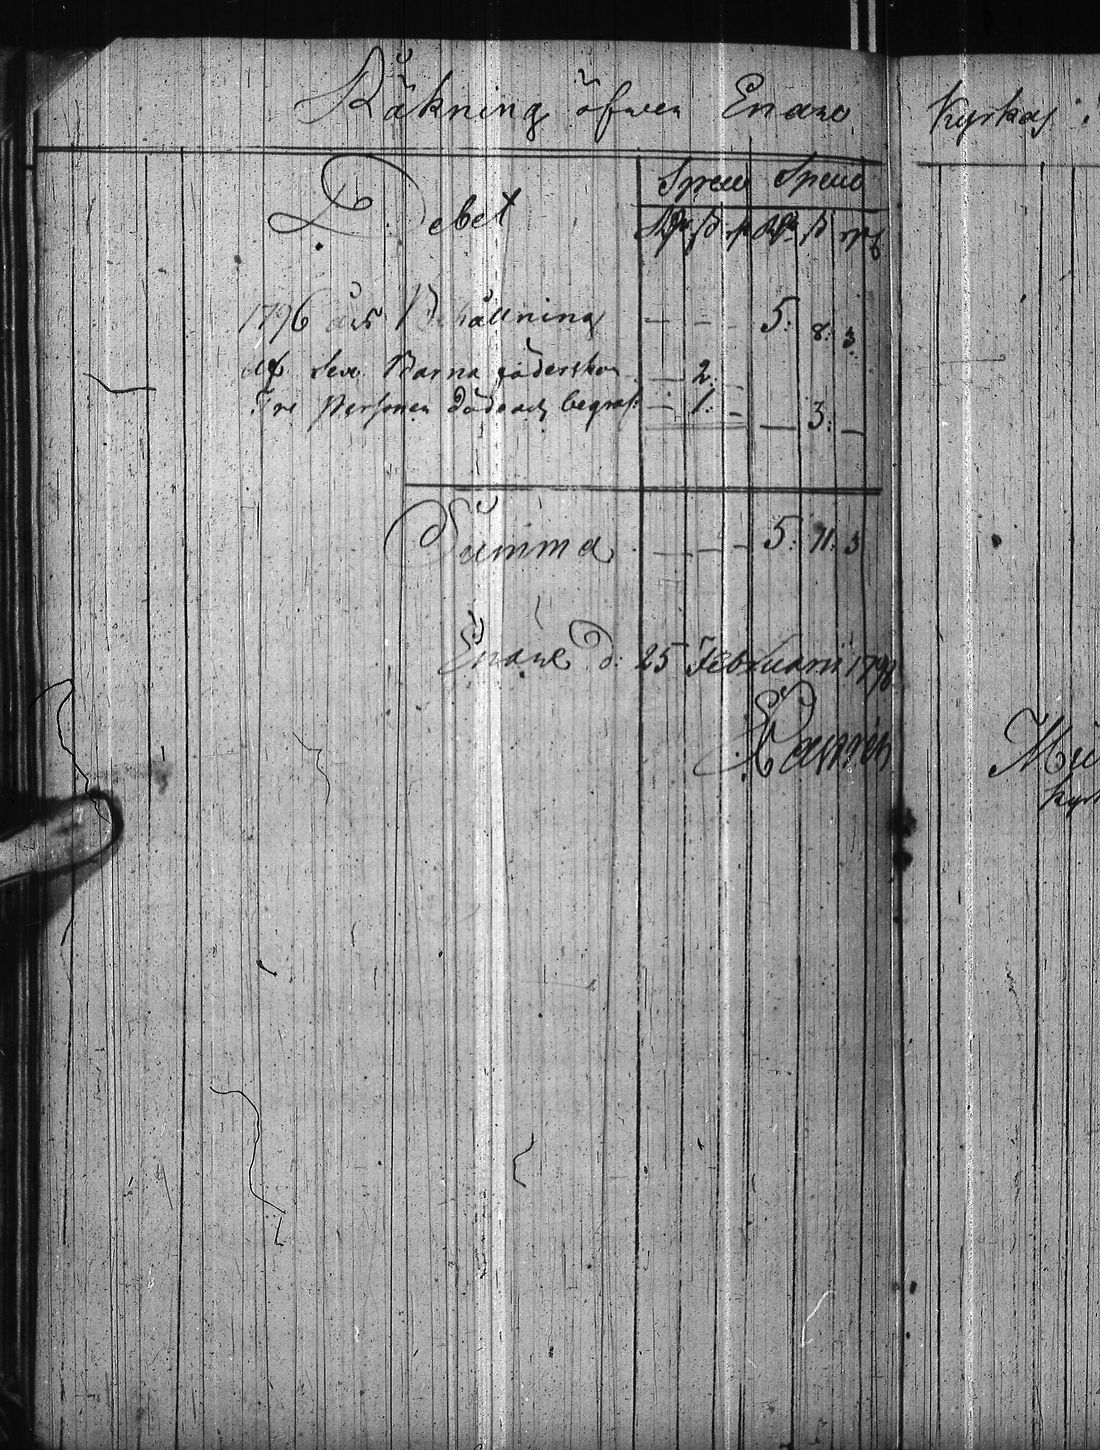 Räkning öfwer Enare Kyrkas
Debet Specie Specie
Rdr ß r Rdr ß r
1796 års Behållning — — — 5: 8: 3.
Af Sex Barna föderskor — 2: —
Tre Personer döde och begraf: — 1: — — 3: —
Summa — — — 5: 11: 3
Enare d: 25 Februarii 1798